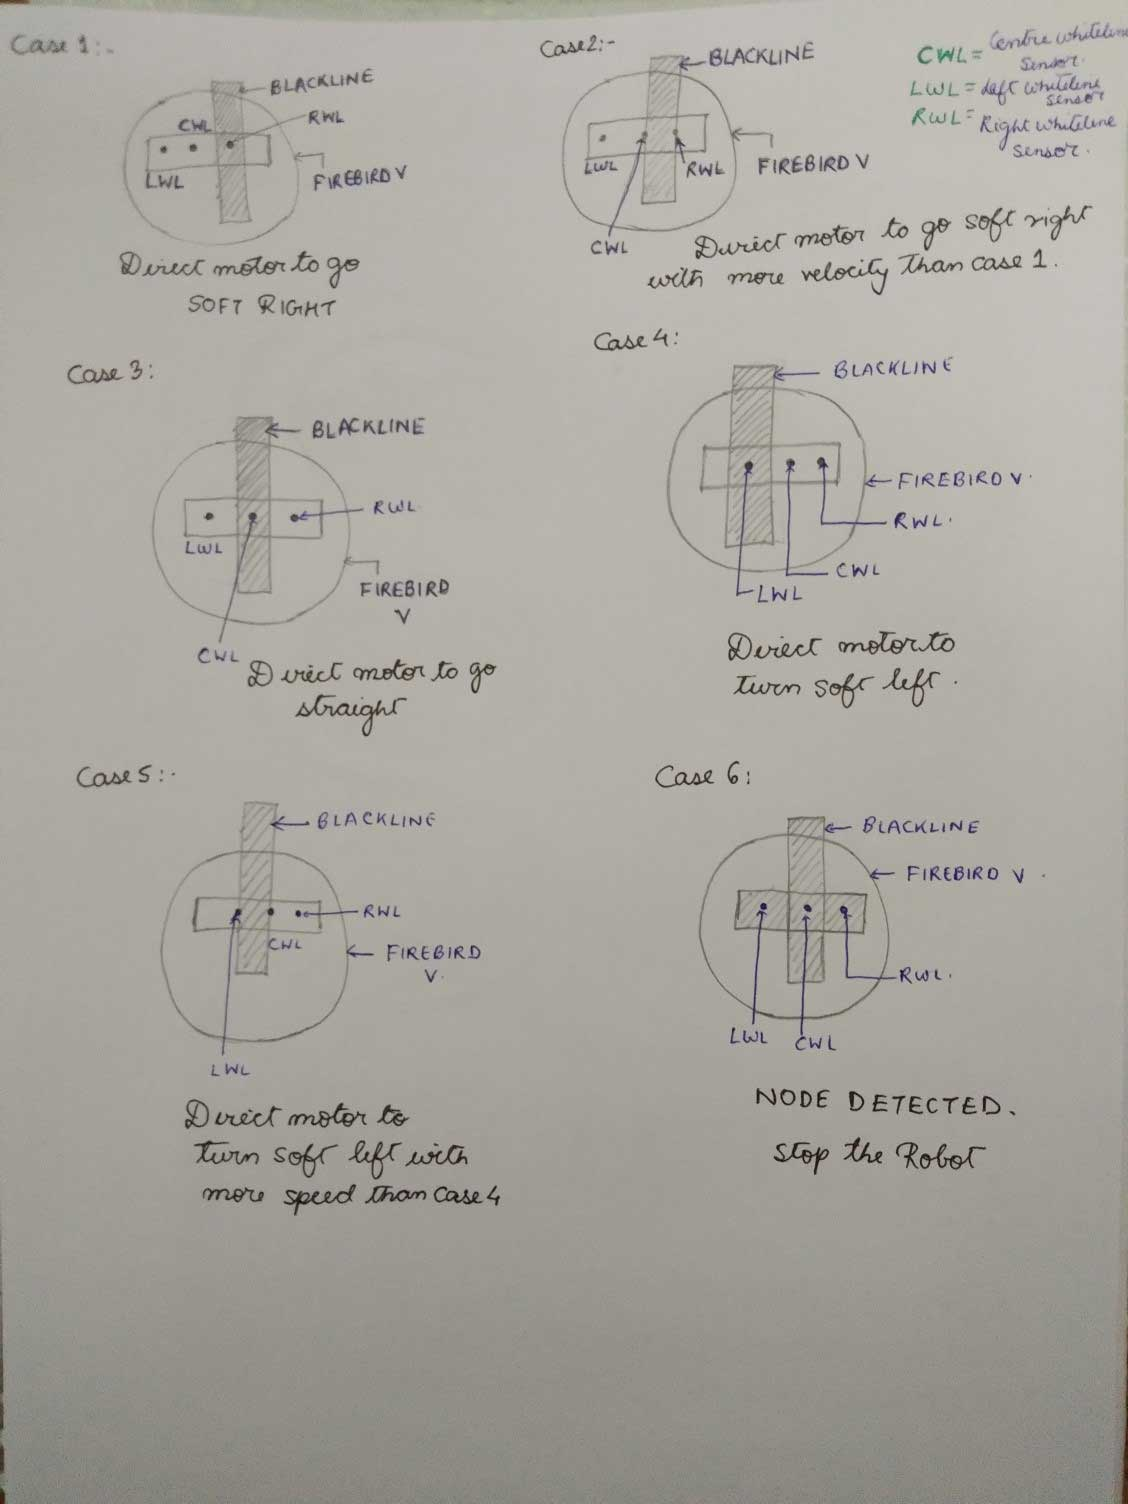 Case 1:-
BLACKLINE
CWL
RWL
LWL
FIREBIRD V
Direct motor to go
SOFT RIGHT
Case2:-
BLACKLINE
LWL
RWL
FIREBIRD V
CWL
Direct motor to go soft right
with more velocity than case 1.
CWL= Centre whiteline
sensor.
LWL= Left whiteline
sensor
RWL= Right whiteline
sensor.
Case 3:
BLACKLINE
RWL.
LWL
FIREBIRD
V
CWL
Direct motor to go
straight
Case 4:
BLACKLINE
FIREBIRD V.
RWL.
CWL
LWL
Direct motor to
turn soft left.
Case 5:-
BLACKLINE
RWL
CWL
FIREBIRD
V.
LWL
Direct motor to
turn soft left with
more speed than case 4
Case 6:
BLACKLINE
FIREBIRD V.
RWL.
LWL
CWL
NODE DETECTED.
Stop the Robot